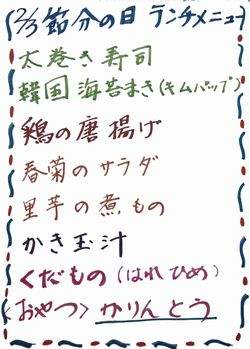 2/3 節分の日 ランチメニュー
太巻き寿司
韓国海苔まき(キムパップ)
鶏の唐揚げ
春菊のサラダ
里芋の煮もの
かき玉汁
くだもの(はれひめ)
<おやつ> かりんとう